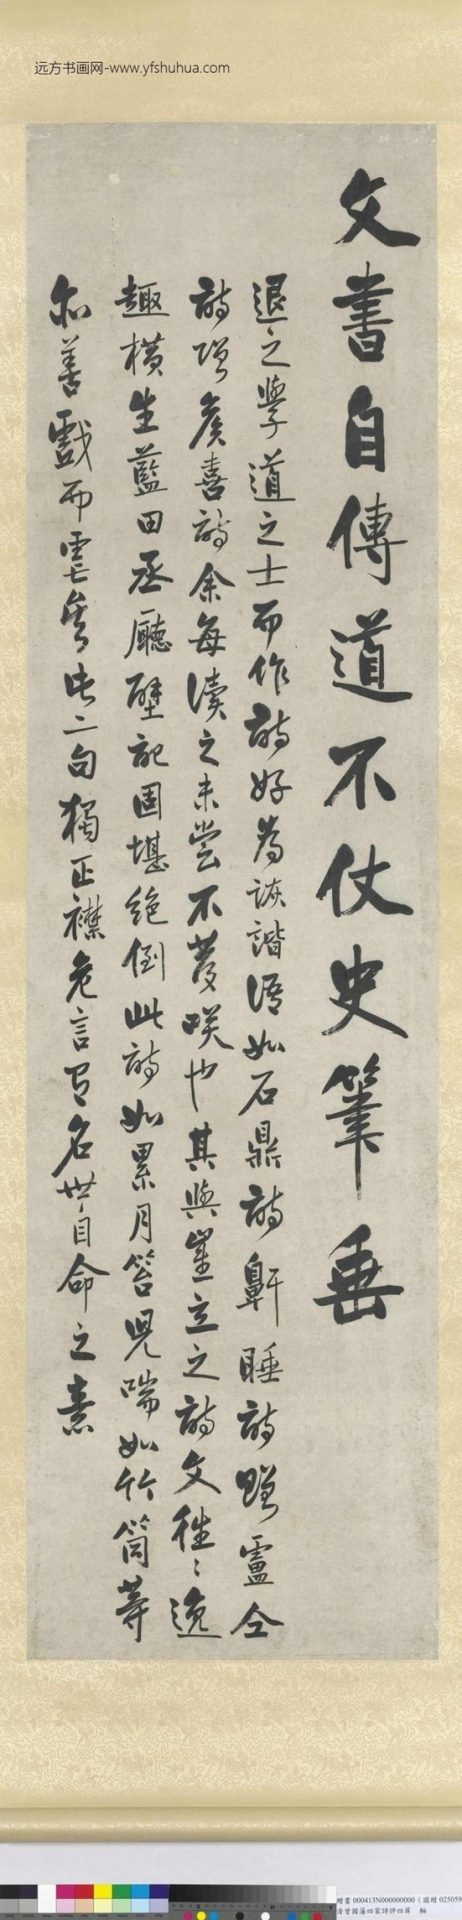 远方书画网-www.yfshuhua.com
文書自傳道不仗史筆垂
退之學道之士而作詩好為詼諧語如石鼎詩鼾睡詩贈盧仝
詩贈侯喜詩余每讀之未嘗不發咲也其與崔立之詩文往〻逸
趣橫生藍田丞廳壁記固堪絕倒此詩如累月笞兒喘如竹筒等
亦善戲而霅 此二句獨正襟危言有名世自命之素
贈書 000413N000000000 (國贈 025059
清曾國藩四家詩評四屏 軸